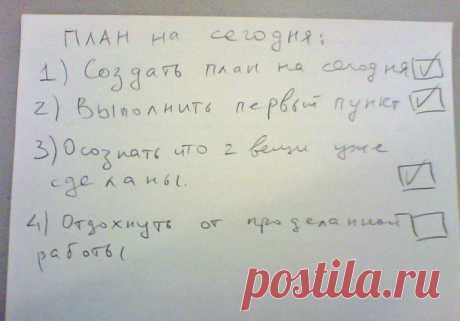 ПЛАН на сегодня:
1) Создать план на сегодня
2) Выполнить первый пункт
3) Осознать что 2 вещи уже
сделаны.
4) Отдохнуть от проделанной
работы
postila.ru